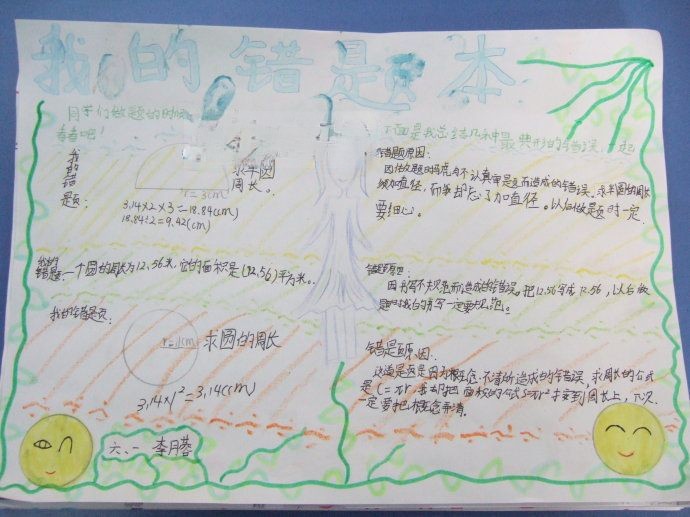 我的错题本
同学们做题的时候
看看吧！
下面是我总结几种最典形的错误，一起
我的错题：
r=3cm
求半圆
周长。
3.14×2×3=18.84(cm)
18.84÷2=9.42(cm)
错题原因：
因做题时马虎，不认真审题而造成的错误。求半圆的周长
须加直径，而我却忘了加直径。以后做题时一定
要细心。
我的错题：一个圆的周长为12.56米，它的面积是(12.56)平方米。
错题原因：
因书写不规范而造成的错误。把12.56写成
12.56，以后做
题时
书写一定要规范。
我的错题：
r=1cm
求圆的周长
3.14×1²=3.14(cm)
错题原因：
这道题是因为概念不清所造成的错误，求周长的公式
是C=πr，我却把面积的公式S=πr²用到周长上，
一定要把概念弄清。
六、一 李月蓉